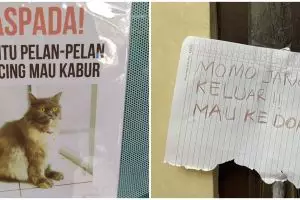 ASPADA!
TU PELAN-PELAN
CING MAU KABUR
MOMO
KELUAR
MAU KE